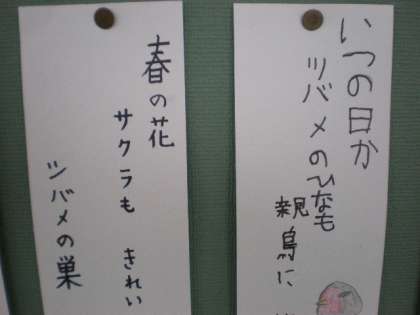 いつの日か
ツバメのひなも
親鳥に
春の花
サクラも きれい
ツバメの巣